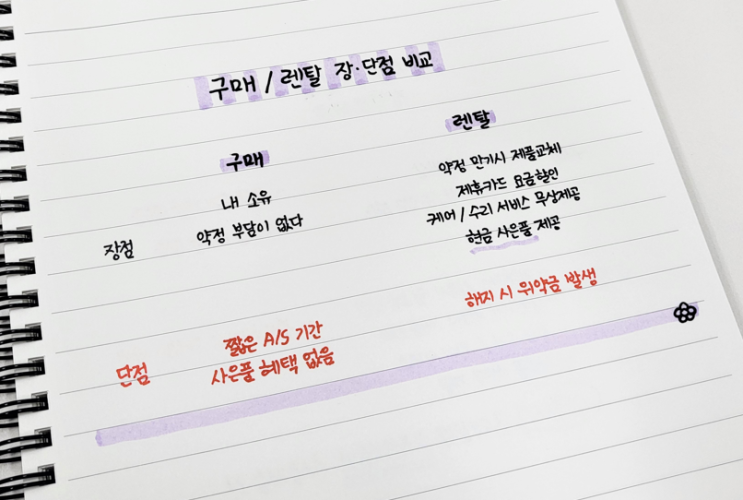 구매 / 렌탈 장·단점 비교
구매
내 소유
약정 부담이 없다
장점
렌탈
약정 만기시 제품교체
제휴카드 요금할인
케어 / 수리 서비스 무상제공
현금 사은품 제공
단점
짧은 A/S 기간
사은품 혜택 없음
해지 시 위약금 발생